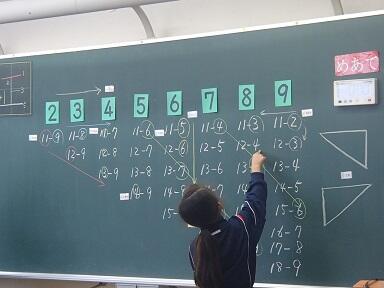 めあて
2 3 4 5 6 7 8 9
11-9 11-8 11-7 11-6 11-5 11-4 11-3 11-2
12-9 12-8 12-7 12-6 12-5 12-4 12-3
13-9 13-8 13-7 13-6 13-4
14-9 14-5
15-6
16-7
17-8
18-9